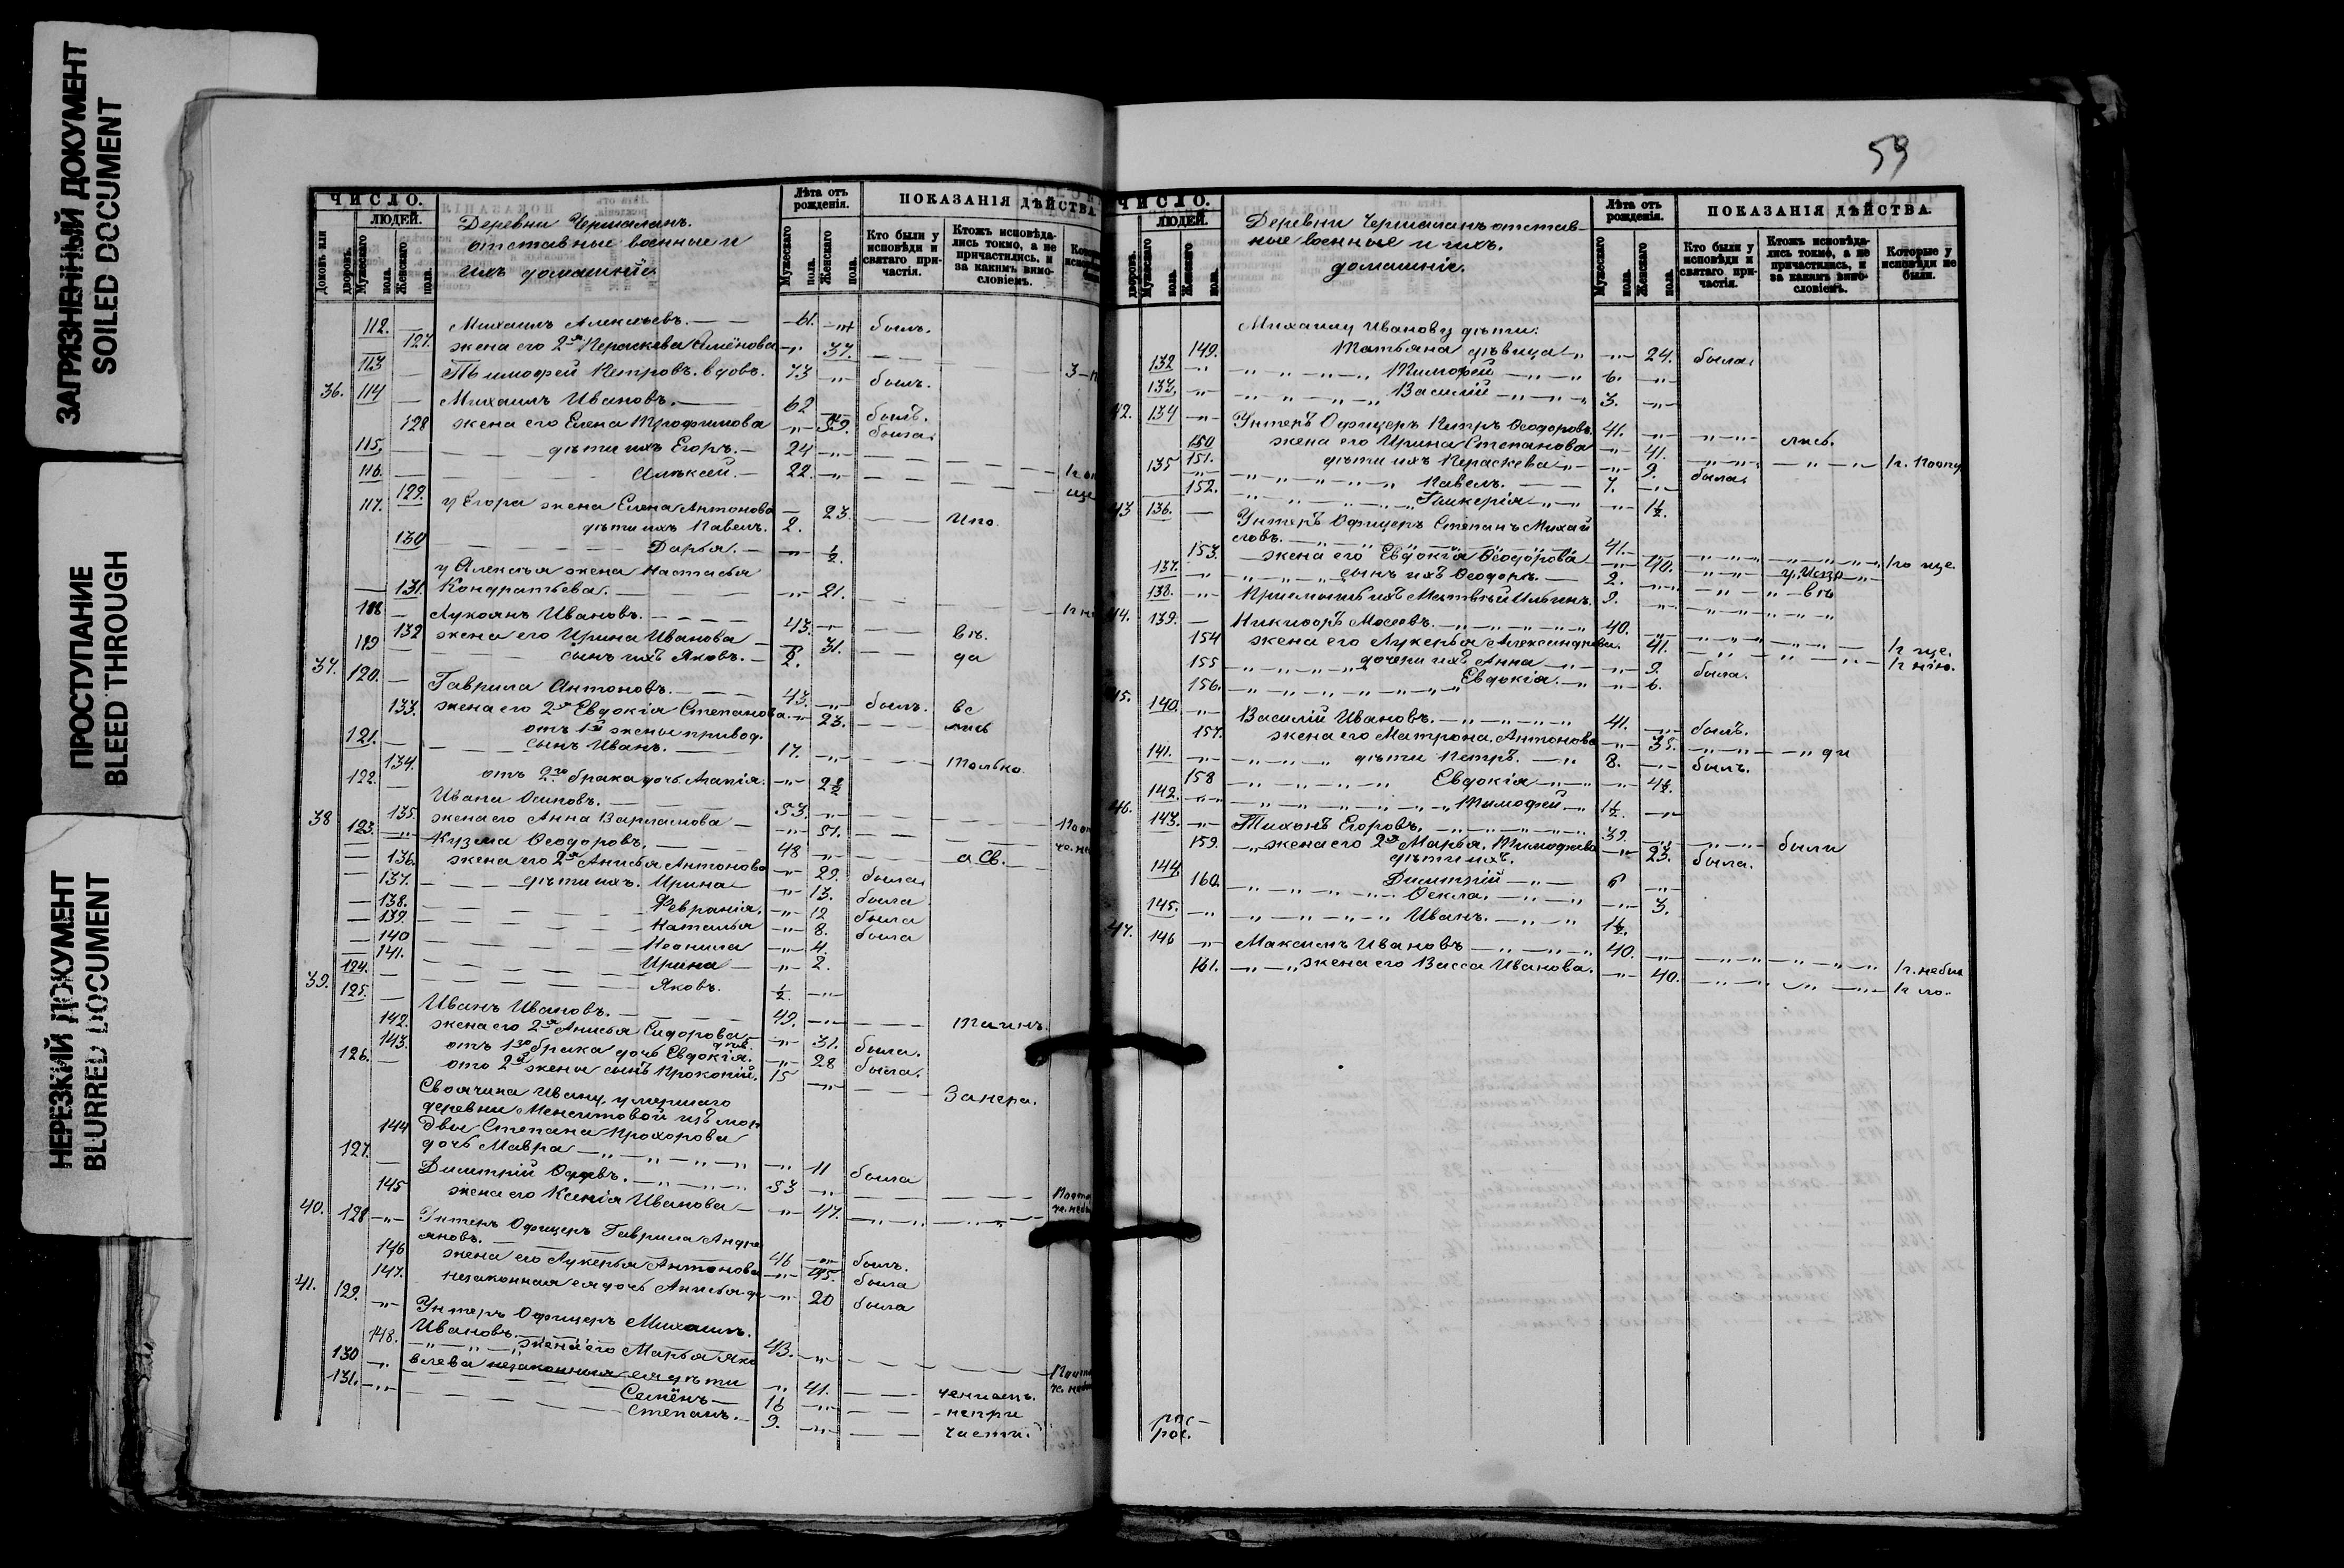 ЗАГРЯЗНЕННЫЙ ДОКУМЕНТ
SOILED DOCUMENT
ПРОСТУПАНИЕ
BLEED THROUGH
НЕРЕЗКИЙ ДОКУМЕНТ
BLURRED DOCUMENT
ЧИСЛО.
ЛЮДЕЙ.
домовъ или дворовъ.
Мужескаго пола.
Женскаго пола.
Деревни
отставные военные и
ихъ домашніе.
Лѣта отъ рожденія.
Мужескаго пола.
Женскаго пола.
ПОКАЗАНІЯ ДѢЙСТВА
Кто были у исповѣди и святаго при-частія.
Ктожъ исповѣда-лись токмо, а не причастились, и за какимъ вино-словіемъ.
112. Михаилъ Алексѣевъ. 61. былъ.
127. жена его 2я Параскева Семёнова 37.
113 Тимофей Петровъ. вдовъ. 73 былъ.
36. 114 Михаилъ Ивановъ. 62 былъ.
128 жена его Елена Трофимова 59. была.
115. дѣти ихъ Егоръ. 24
116. Алексѣй. 22.
129. у Егора жена Елена Антонова 23.
117. дѣти ихъ Павелъ. 2.
130 Дарья. 1/2.
у Алексѣя жена Настасья
131. Кондратьева. 21.
118 Лукоянъ Ивановъ. 43.
132 жена его Ирина Иванова 31.
119 сынъ ихъ Яковъ. 1/2. да
37. 120. Гаврила Антоновъ. 43. былъ.
133. жена его 2я Евдокія Степанова. 23.
отъ 1й жены привод.
121. сынъ Иванъ. 17. только
134. отъ 2го брака дочь Агапія. 2 1/2
122. Ивана Осиповъ. 53.
135. жена его Анна Варламова 51.
38 123. Кузма Ѳеодоровъ. 48
136. жена его 2я Анисья Антонова 29. была.
137. дѣти ихъ. Ирина 13. была
138. Февранія. 12 была
139. Наталья 8. была
140 Неонила 4.
141. Ирина 2.
124. Яковъ. 1/2.
39. 125. Иванъ Ивановъ. 49.
142. жена его 2я Анисья Сидорова 31. была.
143. отъ 1го брака дочь Евдокія. 28 была.
126. ото 2й жены сынъ Прокопій. 15
Своячина Ивану, умершаго
деревни
144 Степана Прохорова
дочь Мавра 11 была
127. Димитрій 53
145 жена его Ксенія Иванова 47.
40. 128 Унтеръ Офицеръ Гаврила Андре
яновъ. 46 былъ.
146 жена его Лукерья Антонова 45. была
147. незаконная ея дочь Анисья 20 была
41. 129. Унтеръ Офицеръ Михаилъ.
Ивановъ. 43.
148. жена его Марья Яко
влева незаконныя ея дѣти 41.
130 Семёнъ 16
131. Степанъ. 9.
59
ЧИСЛО.
ЛЮДЕЙ.
дворовъ.
Мужескаго пола.
Женскаго пола.
Деревни отстав-
ные военные и ихъ.
домашніе.
Лѣта отъ рожденія.
Мужескаго пола.
Женскаго пола.
ПОКАЗАНІЯ ДѢЙСТВА.
Кто были у исповѣди и святаго при-частія.
Ктожъ исповѣда-лись токмо, а не причастились, и за какимъ вино-словіемъ.
Которые у исповѣди не были.
Михаилу Иванову дѣти:
149. Татьяна дѣвица 24. была.
132 Тимофей 6.
133. Василій 3.
42. 134 Унтеръ Офицеръ Петръ Ѳеодоровъ. 41. лись.
150 жена его Ирина Степанова 41.
151. дѣти ихъ Параскева 9. была.
135 Павелъ. 7.
152. Гликерія 1 1/2.
43 136. Унтеръ Офицеръ Степанъ Михай
ловъ. 41.
153. жена его Евдокія Ѳеодорова 40.
137. сынъ ихъ Ѳеодоръ. 2.
138. Приемышъ ихъ Матвѣй Ильинъ. 9.
44. 139. Никифоръ Мосеевъ. 40.
154 жена его Лукерья Александрова. 41.
155 дочери ихъ Анна 9. была.
156. Евдокія. 6.
45. 140. Василій Ивановъ. 41. былъ.
157. жена его Матрона Антонова 35.
141. дѣти Петръ. 8. былъ.
158 Евдокія 4 1/2.
142. Тимофей. 1 1/2.
46. 143. Тихонъ Егоровъ. 39. были
159. жена его 2я Марья Тимофеева 23. была.
дѣти ихъ.
144. Димитрій 6
160. Ѳекла. 3.
145. Иванъ. 1 1/2.
47. 146 Максимъ Ивановъ 40.
161. жена его Васса Иванова. 40.